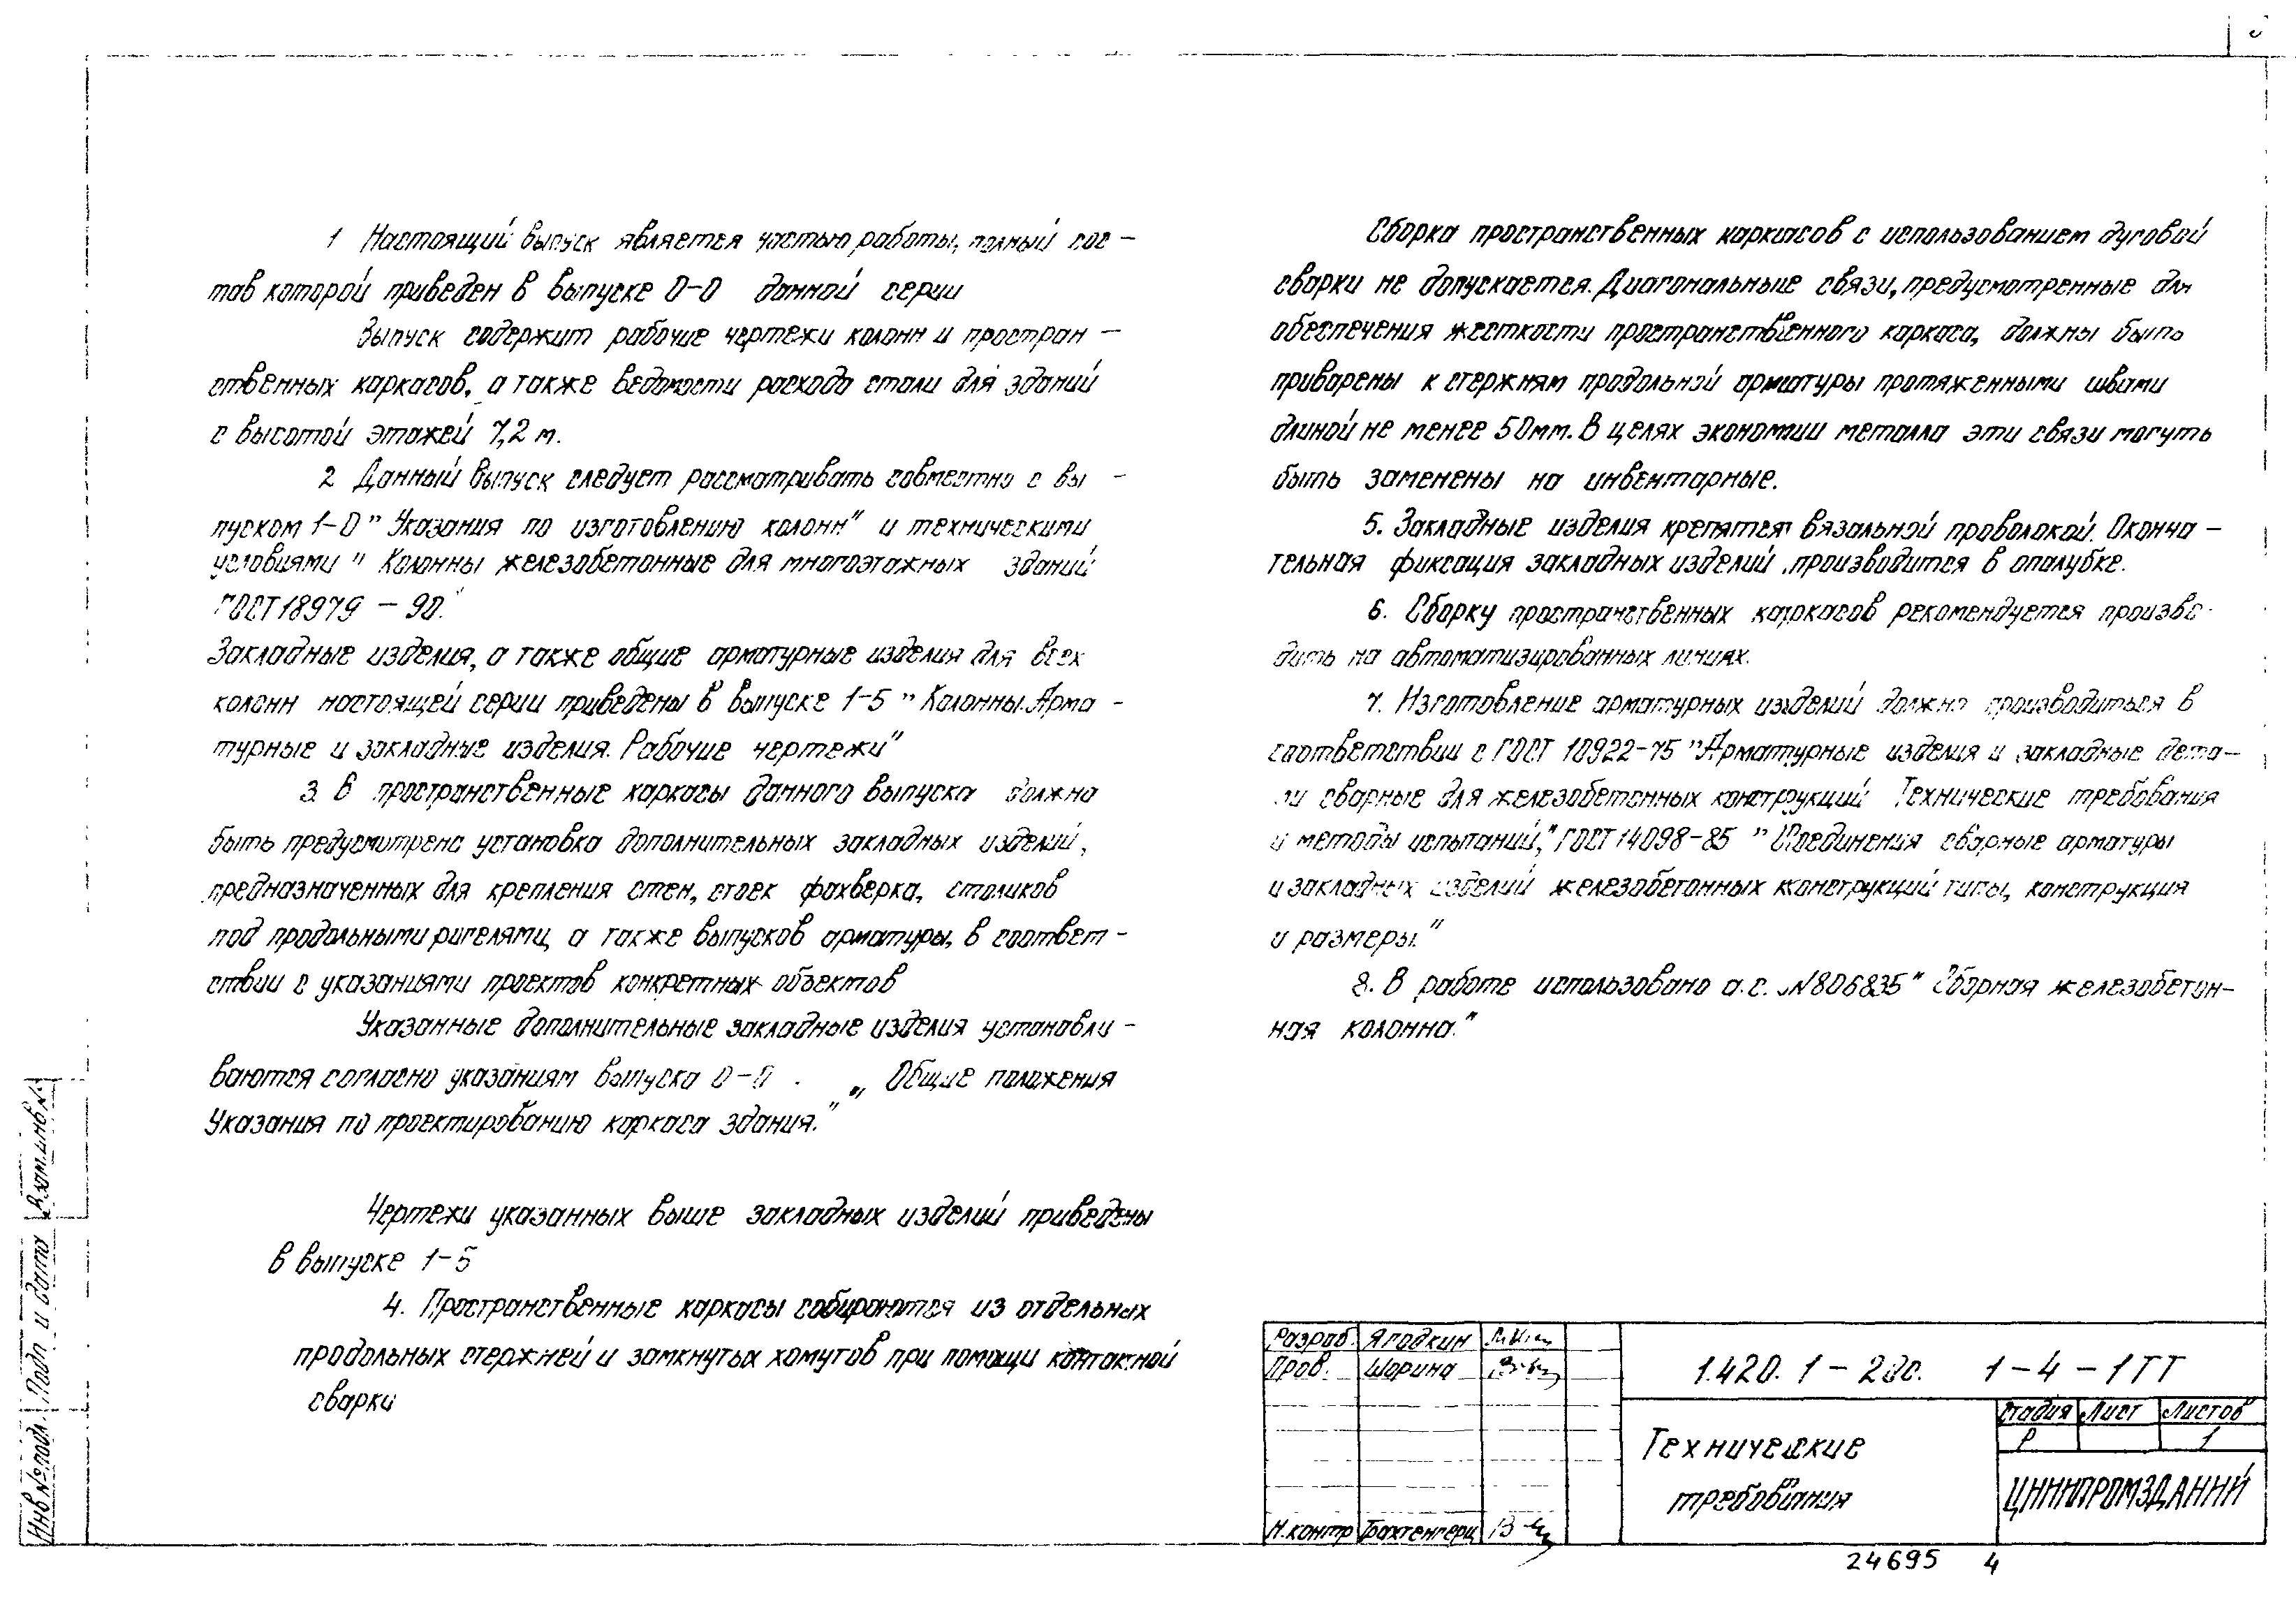 1 Настоящий выпуск является частью работы, полный сос-
тав которой приведен в выпуске 0-0 данной серии
Выпуск содержит рабочие чертежи колонн и простран-
ственных каркасов, а также ведомости расхода стали для зданий
с высотой этажей 7,2 м.
2 Данный выпуск следует рассматривать совместно с вы-
пуском 1-0 "Указания по изготовлению колонн" и техническими
условиями " Колонны железобетонные для многоэтажных зданий
ГОСТ 18979 - 90."
Закладные изделия, а также общие арматурные изделия для всех
колонн настоящей серии приведены в выпуске 1-5 "Колонны. Арма-
турные и закладные изделия. Рабочие чертежи"
3. В пространственные каркасы данного выпуска должна
быть предусмотрена установка дополнительных закладных изделий,
предназначенных для крепления стен, стоек фахверка, столиков
под продольными ригелями, а также выпусков арматуры, в соответ-
ствии с указаниями проектов конкретных объектов
Указанные дополнительные закладные изделия установли-
ваются согласно указаниям выпуска 0-0 . „ Общие положения
Указания по проектированию каркаса здания."
Чертежи указанных выше закладных изделий приведены
в выпуске 1-5
4. Пространственные каркасы собираются из отдельных
продольных стержней и замкнутых хомутов при помощи контактной
сварки
Сборка пространственных каркасов с использованием дуговой
сварки не допускается. Диагональные связи, предусмотренные для
обеспечения жесткости пространственного каркаса, должны быть
приварены к стержням продольной арматуры протяженными швами
длиной не менее 50мм. В целях экономии металла эти связи могуть
быть заменены на инвентарные.
5. Закладные изделия крепятся вязальной проволокой. Оконча-
тельная фиксация закладных изделий производится в опалубке.
6. Сборку пространственных каркасов рекомендуется произво-
дить на автоматизированных линиях.
7. Изготовление арматурных изделий должно производиться в
соответствии с ГОСТ 10922-75 "Арматурные изделия и закладные дета-
ли сварные для железобетонных конструкций Технические требования
и методы испытаний," ГОСТ 14098-85 " Соединения сварные арматуры
и закладных изделий железобетонных конструкций типы, конструкция
и размеры."
8. В работе использовано а.с. №806835 " Сборная железобетон-
ная колонна."
Разраб. Ягодкин
Пров. Шарина
Н.контр Трахтенгерц
1.420.1-20с. 1-4-1ТТ
Технические
требования
Стадия Лист Листов
Р 1
ЦНИИПРОМЗДАНИЙ
24695 4
Инв № подл. Подп и дата Взам.инв №